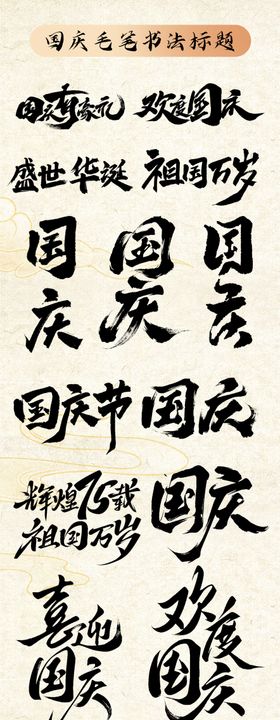 国庆毛笔书法标题
国庆有家礼
欢度国庆
盛世华诞
祖国万岁
国庆
国庆
国庆
国庆节
国庆
辉煌75载
祖国万岁
国庆
喜迎
国庆
欢度
国庆